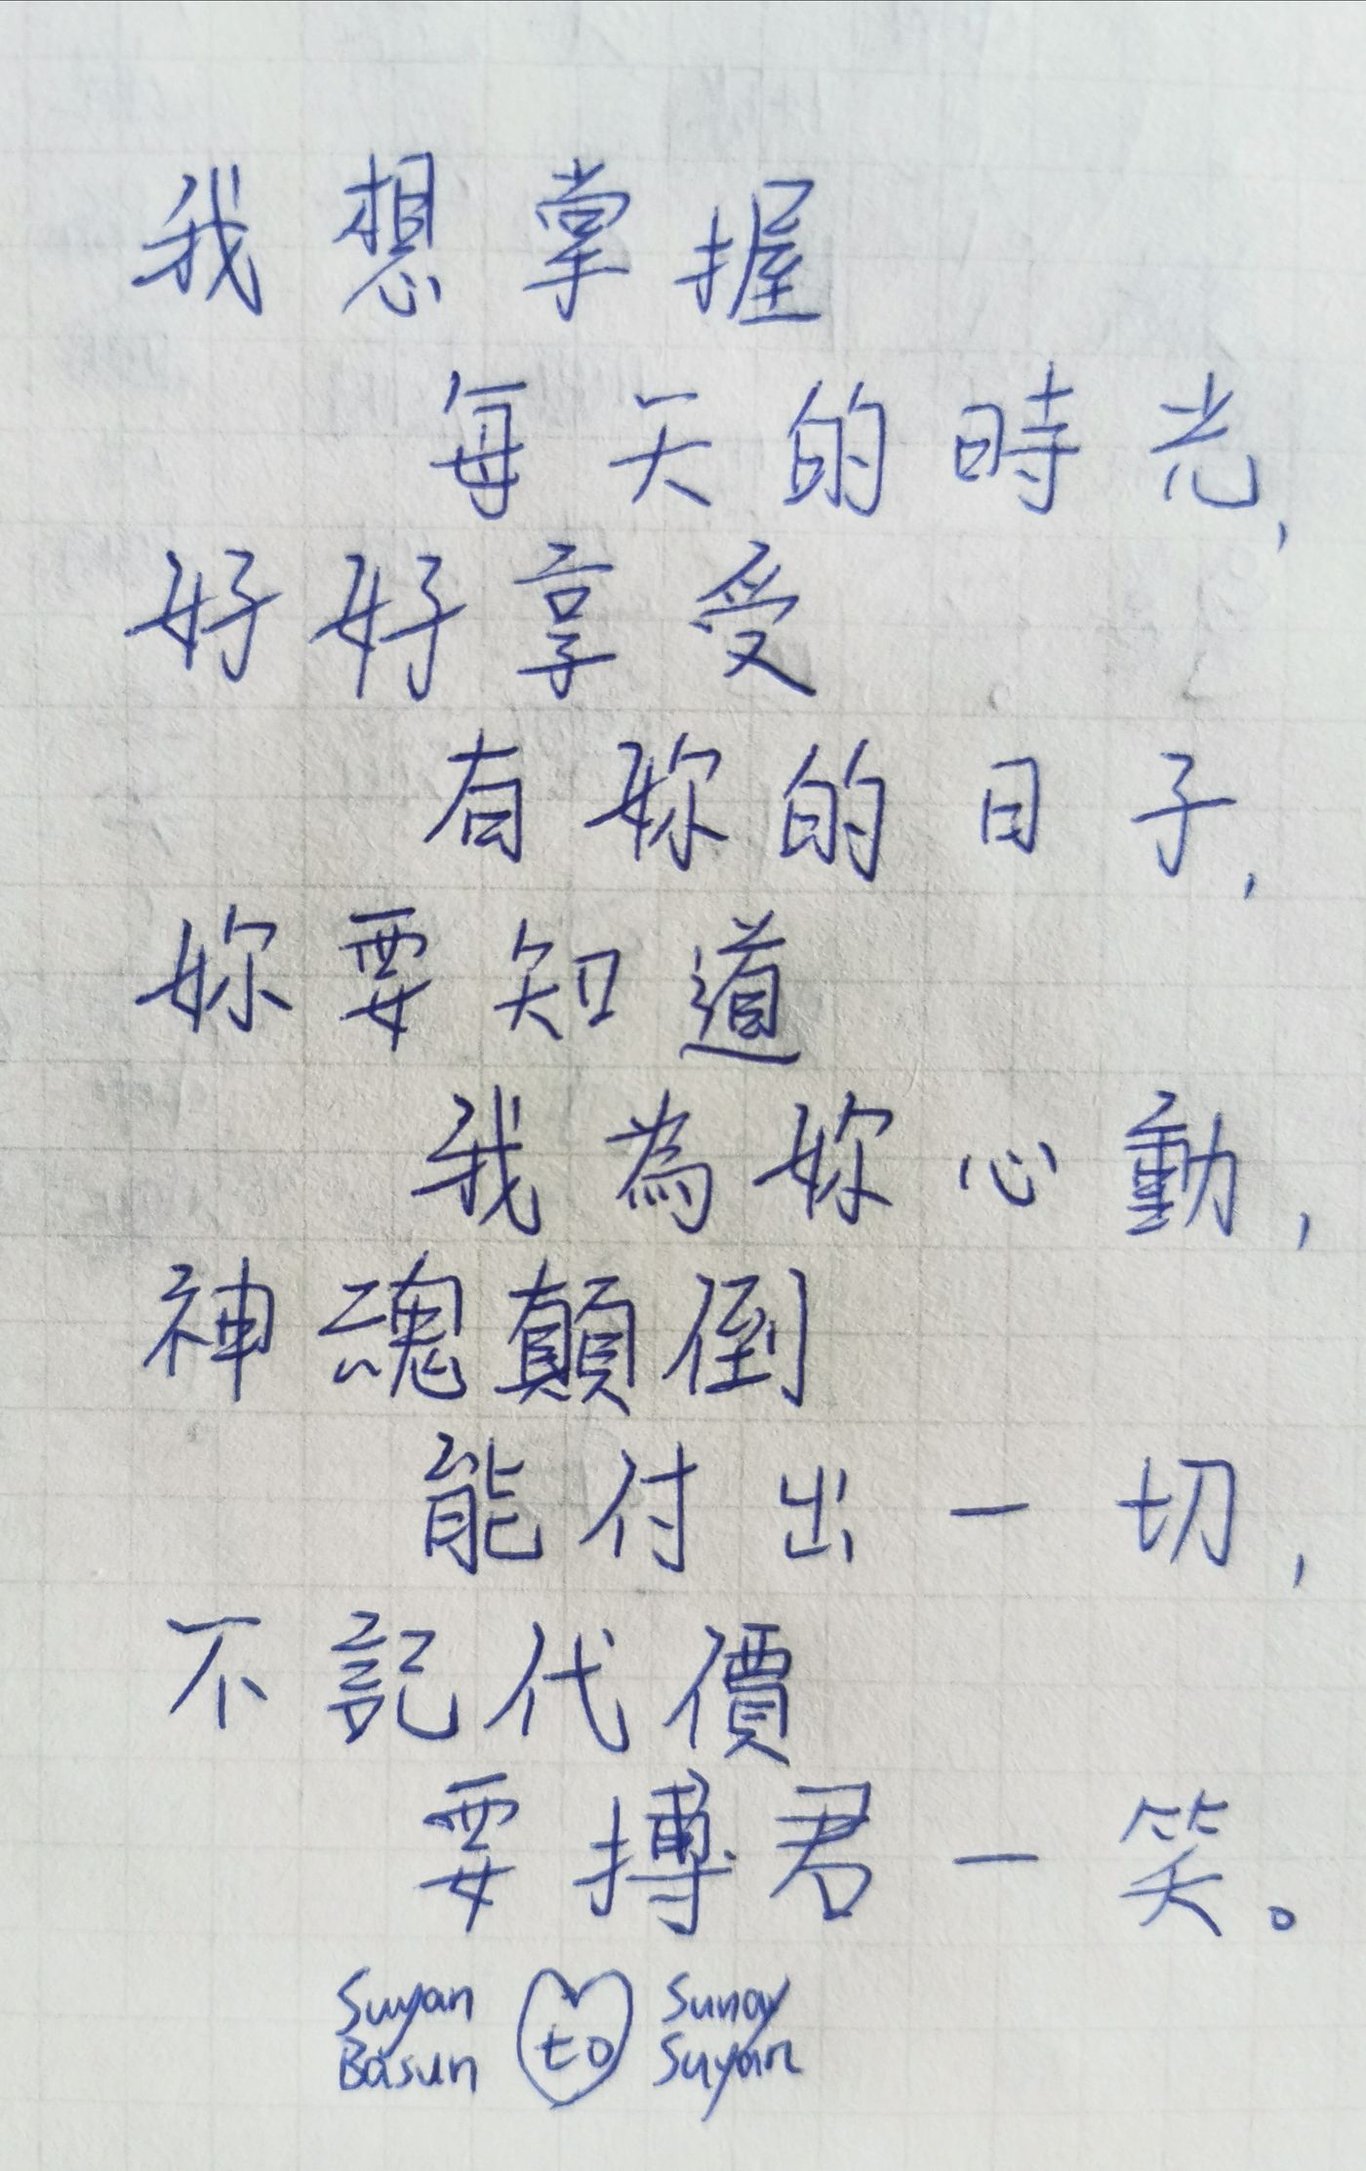 我想掌握
每天的時光,
好好享受
有妳的日子,
妳要知道
我為妳心動,
神魂顛倒
能付出一切,
不記代價
要搏君一笑。
Suyan to Sunay
Basun Suyan